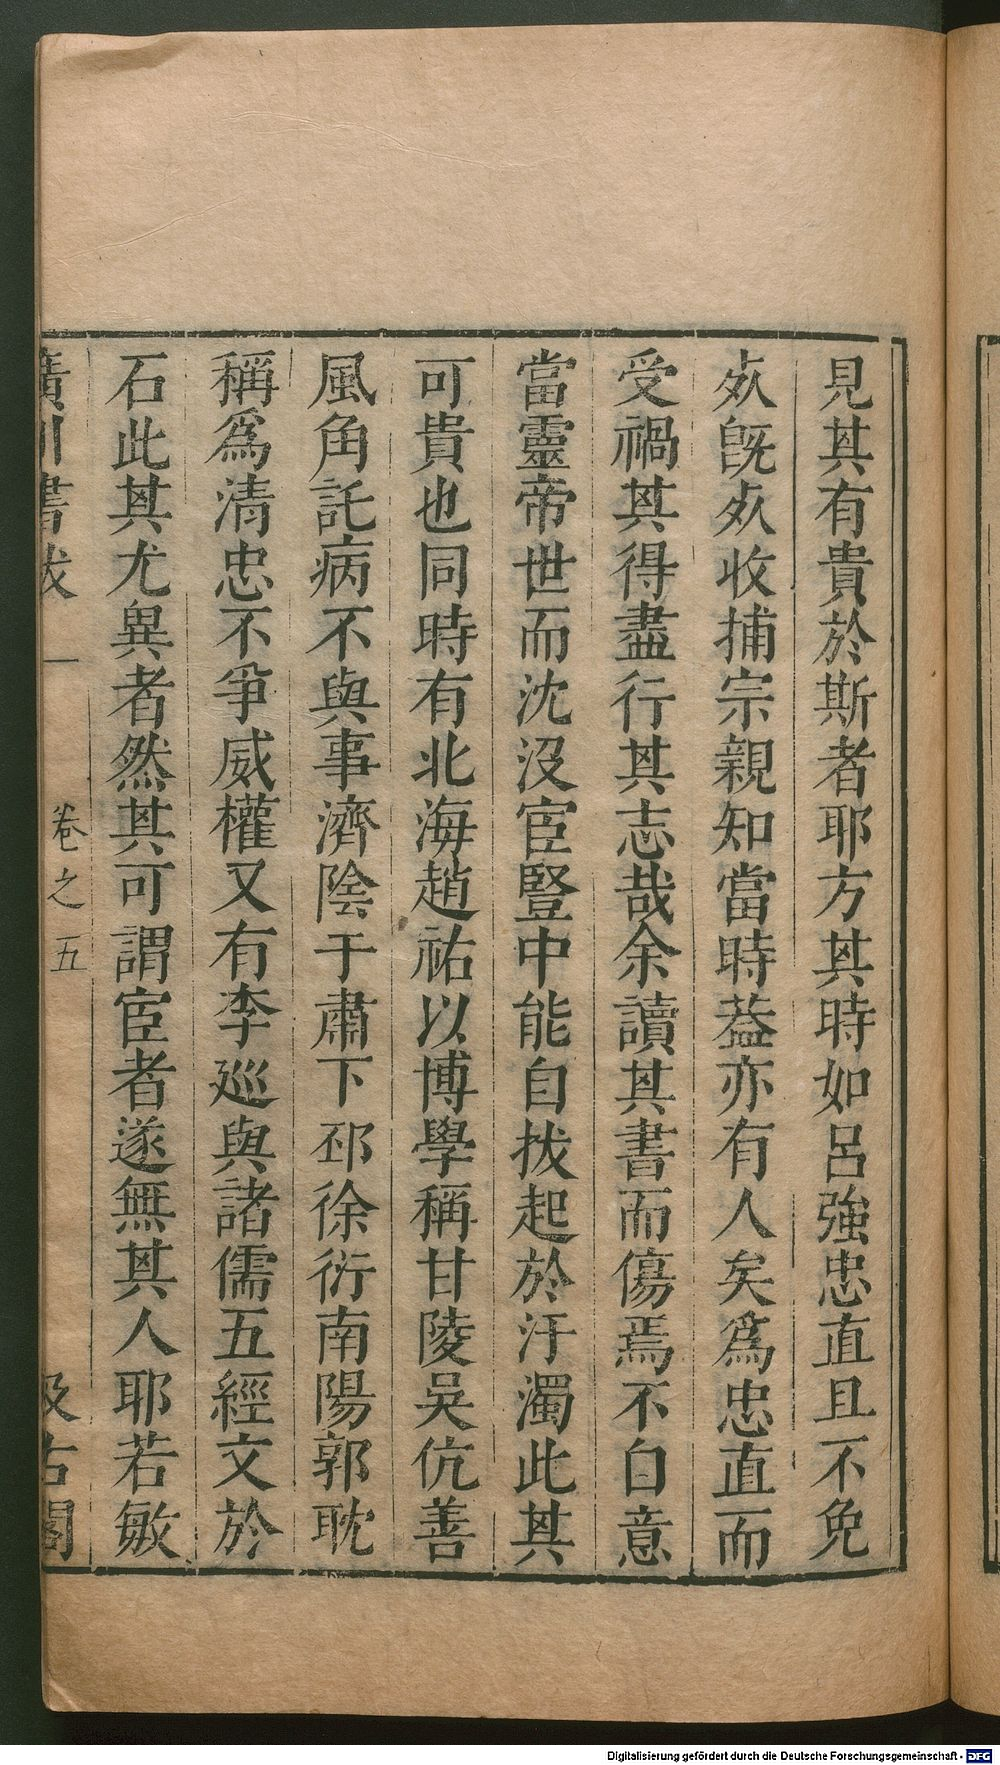 見其有貴於斯者耶方其時如呂強忠直且不免
夾旣夾收捕宗親知當時葢亦有人矣爲忠直而
受禍其得盡行其志哉余讀其書而傷焉不白意
當靈帝世而沈没宦豎中能自拔起於汙濁此其
可貴也同時有北海趙祐以博學稱甘陵吳伉善
風角託病不與事濟陰于肅下邳徐衍南陽郭耽
稱爲清忠不爭威權又有李廵與諸儒五經文於
石此其尤異者然其可謂宦者遂無其人耶若敏
廣川書跋 一 卷之五 汲古閣
Digitalisierung gefördert durch die Deutsche Forschungsgemeinschaft - DFG